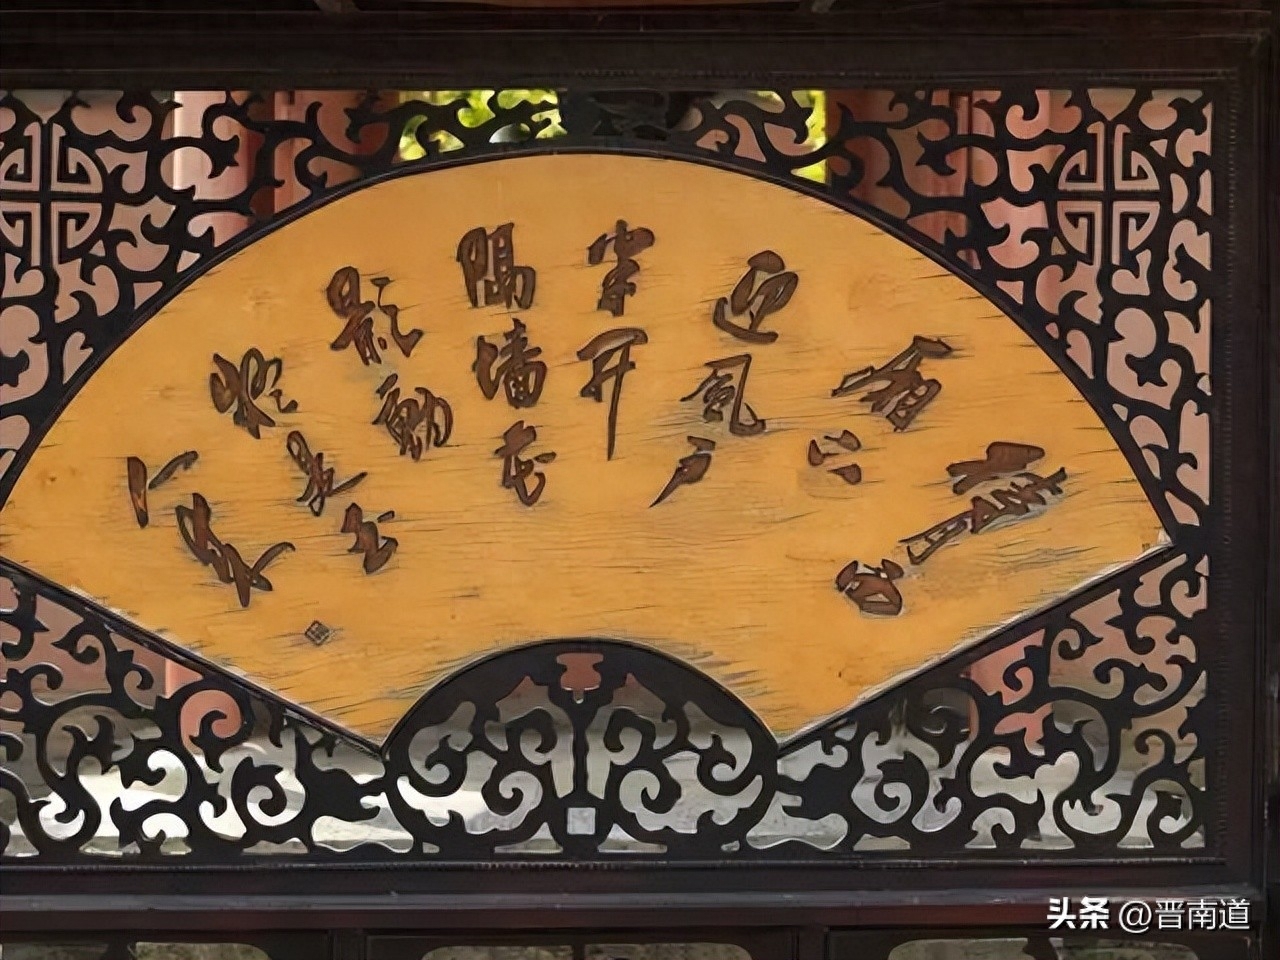 待月西
厢下
迎風户
半开
隔墙花
影動
疑是玉
人来
头条 @晋南道